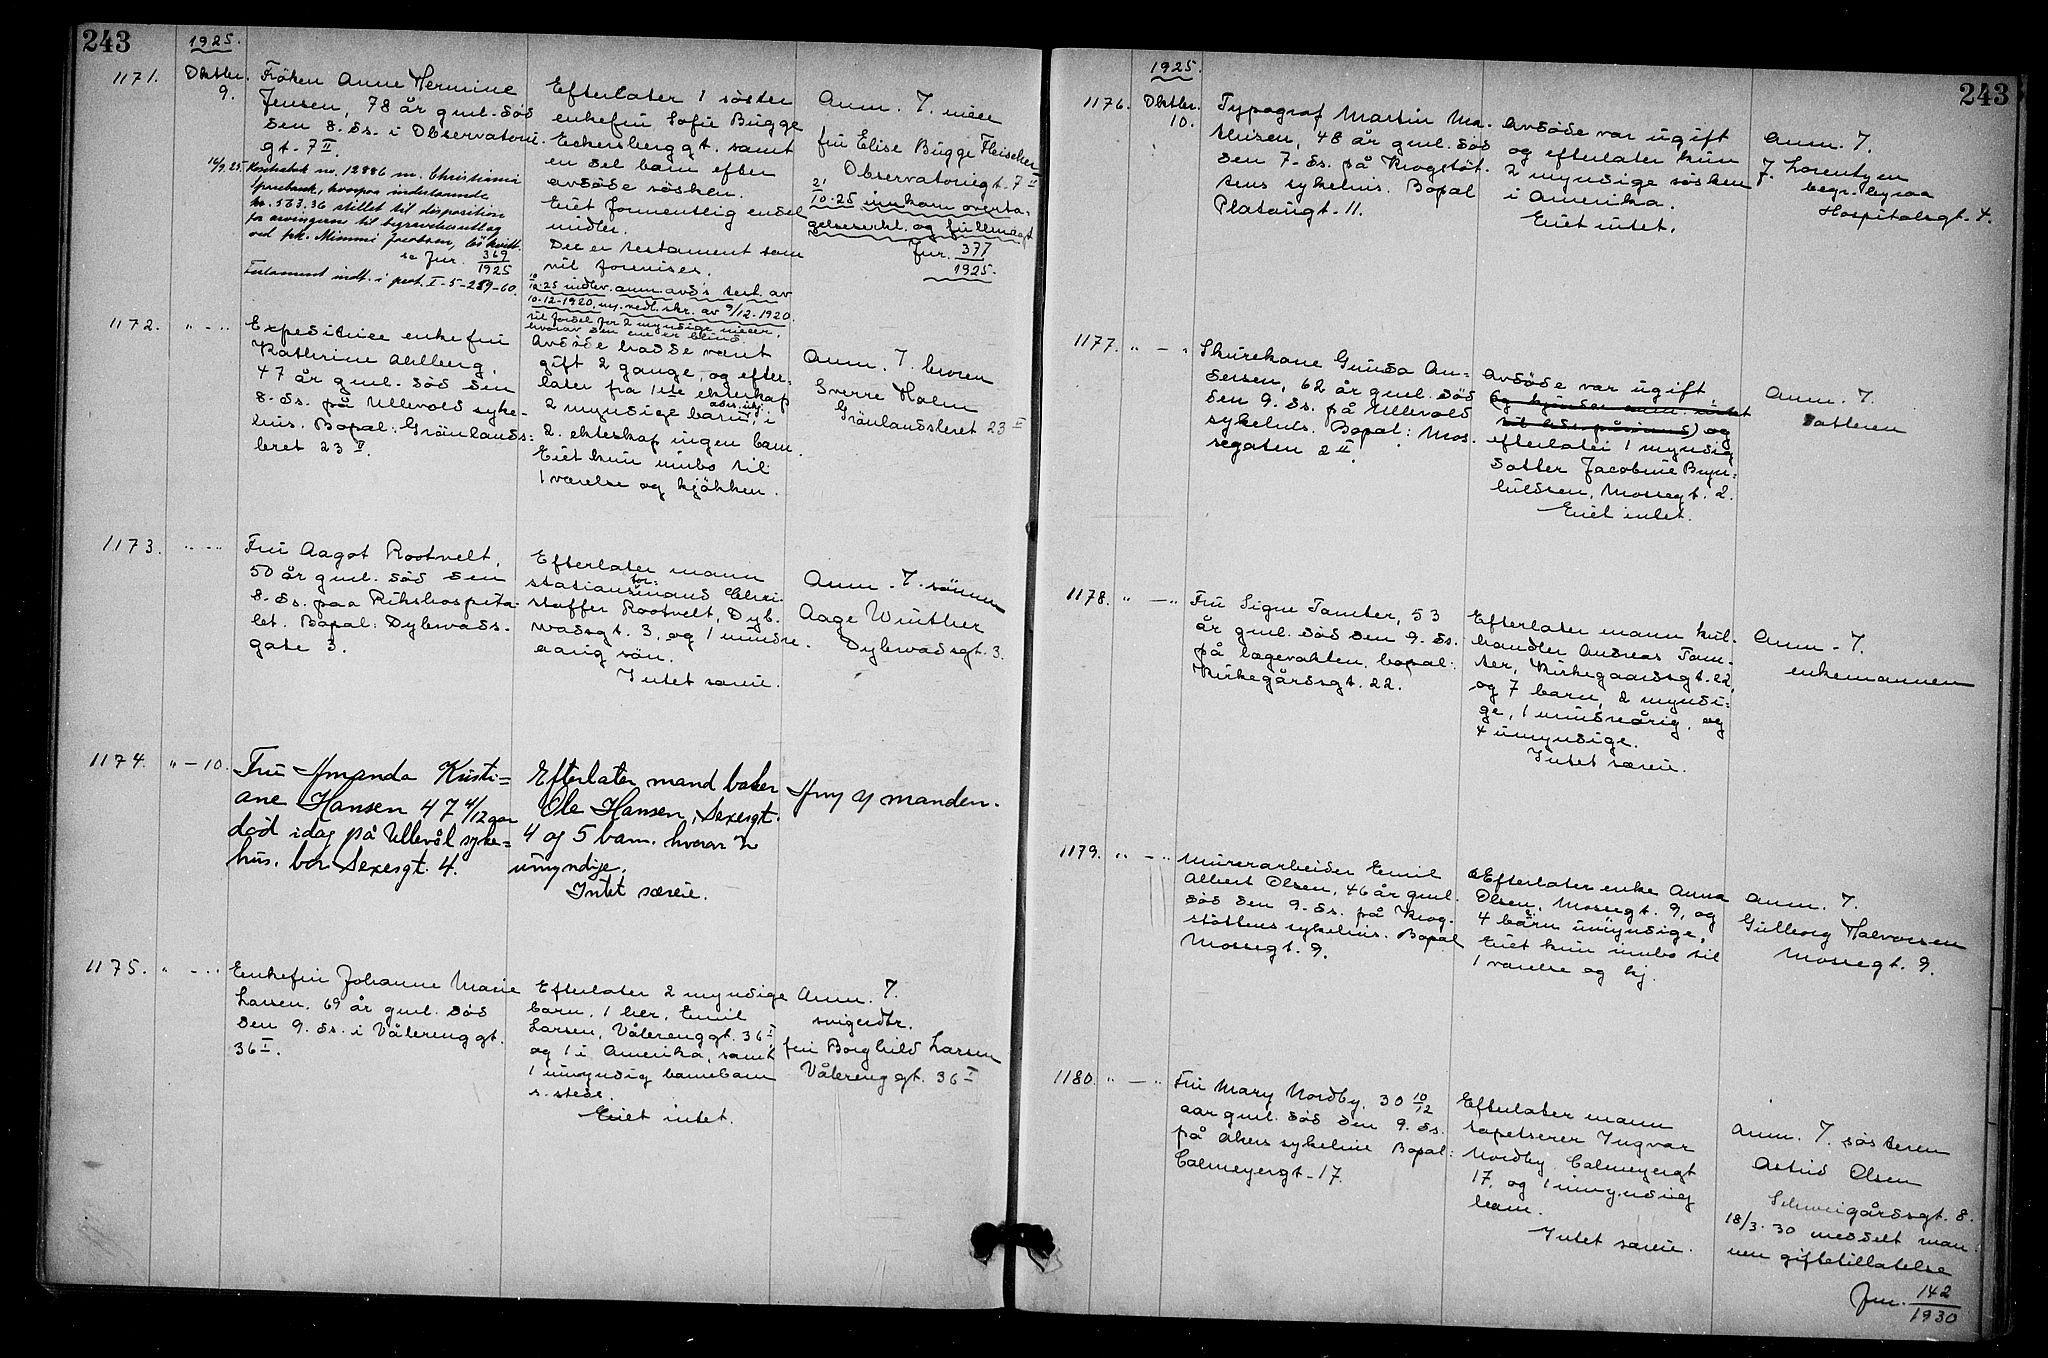 243
1925.
1171.
Oktbr.
9.
Fröken Anne Hermine
Jensen, 78 år gml. död
den 8. ds. i Observatori
gt. 7 II.
16/9.25. Kontrabok no. 12886 m. Christiania
Sparebank, hvorpaa indestaaende
kr. 533.36 stillet til disposition
for arvingerne til begravelsesutlæg
ved frk. Mimmi Jacobsen,
se Jur. 369/1925
Testament indt. i prot. I-5-259-60.
Efterlater 1 söster
enkefru Sofie Bugge
Eckersberggt. samt
en del barn efter
avdöde sösken.
Eiet formentlig endel
midler.
Der er testament som
vil fremvises.
10/12.25 indlev. anm. avd's test. av
10-12-1920, m. nedt. skr. av 9/12-1920.
til fordel for 2 myndige niecer,
hvorav den ene er blind.
Anm. 7. niece
fru Elise Bugge Fleischer
Observatoriegt. 7 II
21/10.25 innkom overta-
gelseserkl. og fullmagt
Jur. 377/1925.
1172.
" - "
Expeditrice enkefru
Kathrine Ahlberg,
47 år gml. död den
8. ds. på Ullevold syke-
hus. Bopal: Grönlands-
leret 23 II.
Avdöde hadde vært
gift 2 gange, og efter-
later fra 1ste ekteskap
2 myndige barn, i
2. ekteskap ingen barn.
Eiet kun innbo til
1 værelse og kjökken.
Anm. 7. broren
Sverre Holm
Grönlandsleret 23 II
1173.
" - "
Fru Aagot Rootwelt,
50 år gml. död den
8. ds. paa Rikshospita-
let. Bopal: Dybwads-
gate 3.
Efterlater mann
stationsformand Chri-
stoffer Rootwelt, Dyb-
wadsgt. 3, og 1 mindre-
aarig sön.
Intet særeie.
Anm. 7. sönnen
Aage Winther
Dybwadsgt. 3.
1174.
" - 10.
Fru Amanda Kristi=
ane Hansen 47 4/12 aar
död idag på Ullevål syke=
hus. bor Sexesgt. 4.
Efterlater mand baker
Ole Hansen, Sexesgt.
4 og 5 barn. hvorav 2
umyndige.
Intet særeie.
Any 7 manden.
1175.
" - "
Enkefru Johanne Marie
Larsen, 69 år gml. död
den 9. ds. i Vålerenggt.
36 I.
Efterlater 2 myndige
barn, 1 her, Emil
Larsen, Vålerenggt. 36 I,
og 1 i Amerika, samt
1 umyndig barnebarn
s. stede.
Eiet intet.
Anm. 7.
svigerdtr.
fru Borghild Larsen
Vålerenggt. 36 I
243
1925.
1176.
Oktbr.
10.
Typograf Martin Ma-
thisen, 48 år gml. död
den 7. ds. på Krogstöt-
tens sykehus. Bopal
Platougt. 11.
Avdöde var ugift
og efterlater kun
2 myndige sösken
i Amerika.
Eiet intet.
Anm. 7.
J. Lorentzen
begr. byraa
Hospitalsgt. 4.
1177.
" - "
Skurekone Gunda An-
dersen, 62 år gml. död
den 9. ds. på Ullevold
sykehus. Bopal: Mos-
segaten 2 II.
Avdöde var ugift,
og
efterlater 1 myndig
datter Jacobine Bryn-
hildsen, Mossegt. 2.
Eiet intet.
Anm. 7.
datteren
1178.
" - "
Fru Signe Tamber, 53
år gml. död den 9. ds.
på lægevakten. bopal:
Kirkegårdsgt. 22.
Efterlater mann kul-
handler Andreas Tam-
ber, Kirkegaardsgt. 22,
og 7 barn, 2 myndi-
ge, 1 mindreårig, og
4 umyndige.
Intet særeie.
Anm. 7.
enkemannen
1179.
" - "
Murerarbeider Emil
Albert Olsen, 46 år gml.
död den 9. ds. på Krog-
stöttens sykehus. Bopal
Mossegt. 9.
Efterlater enke Anna
Olsen, Mossegt. 9, og
4 barn umyndige,
Eiet kun innbo til
1 værelse og kj.
Anm. 7.
Gulborg Halvorsen
Mossegt. 9.
1180.
" - "
Fru Mary Nordby, 30 10/12
aar gml. död den 9. ds.
på Akers sykehus Bopal:
Calmeyergt. 17.
Efterlater mann
tapetserer Ingvar
Nordby, Calmeyergt
17, og 1 umyndig
barn.
Intet særeie.
Anm. 7. sösteren
Astrid Olsen
Schweigårdsgt. 8.
18/3.30 meddelt man-
nen giftetillatelse
Jur. 142/1930